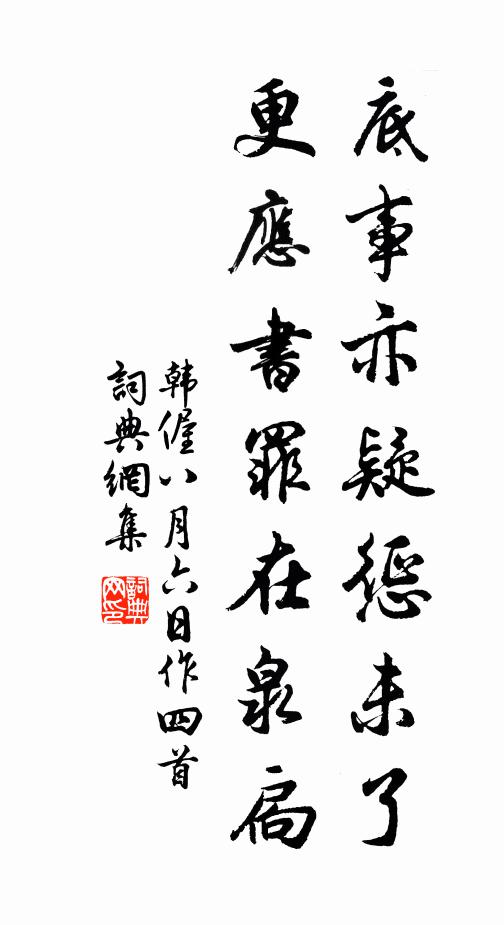 底事亦疑惩未了
更應書罪在泉扃
韩偓八月六日作四首
詞典網集
詞典網印